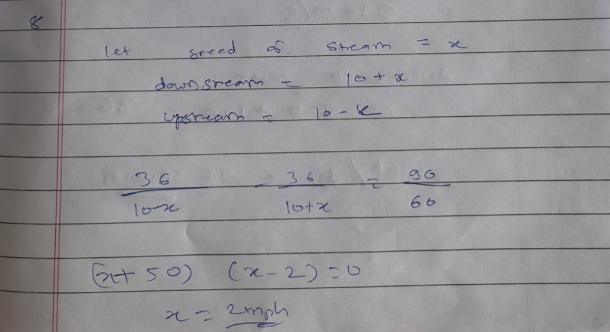 8
let speed of stream = x
downsream = 10+x
upstream = 10-x
36/10-x - 36/10+x = 90/60
(x+50) (x-2)=0
x = 2mph